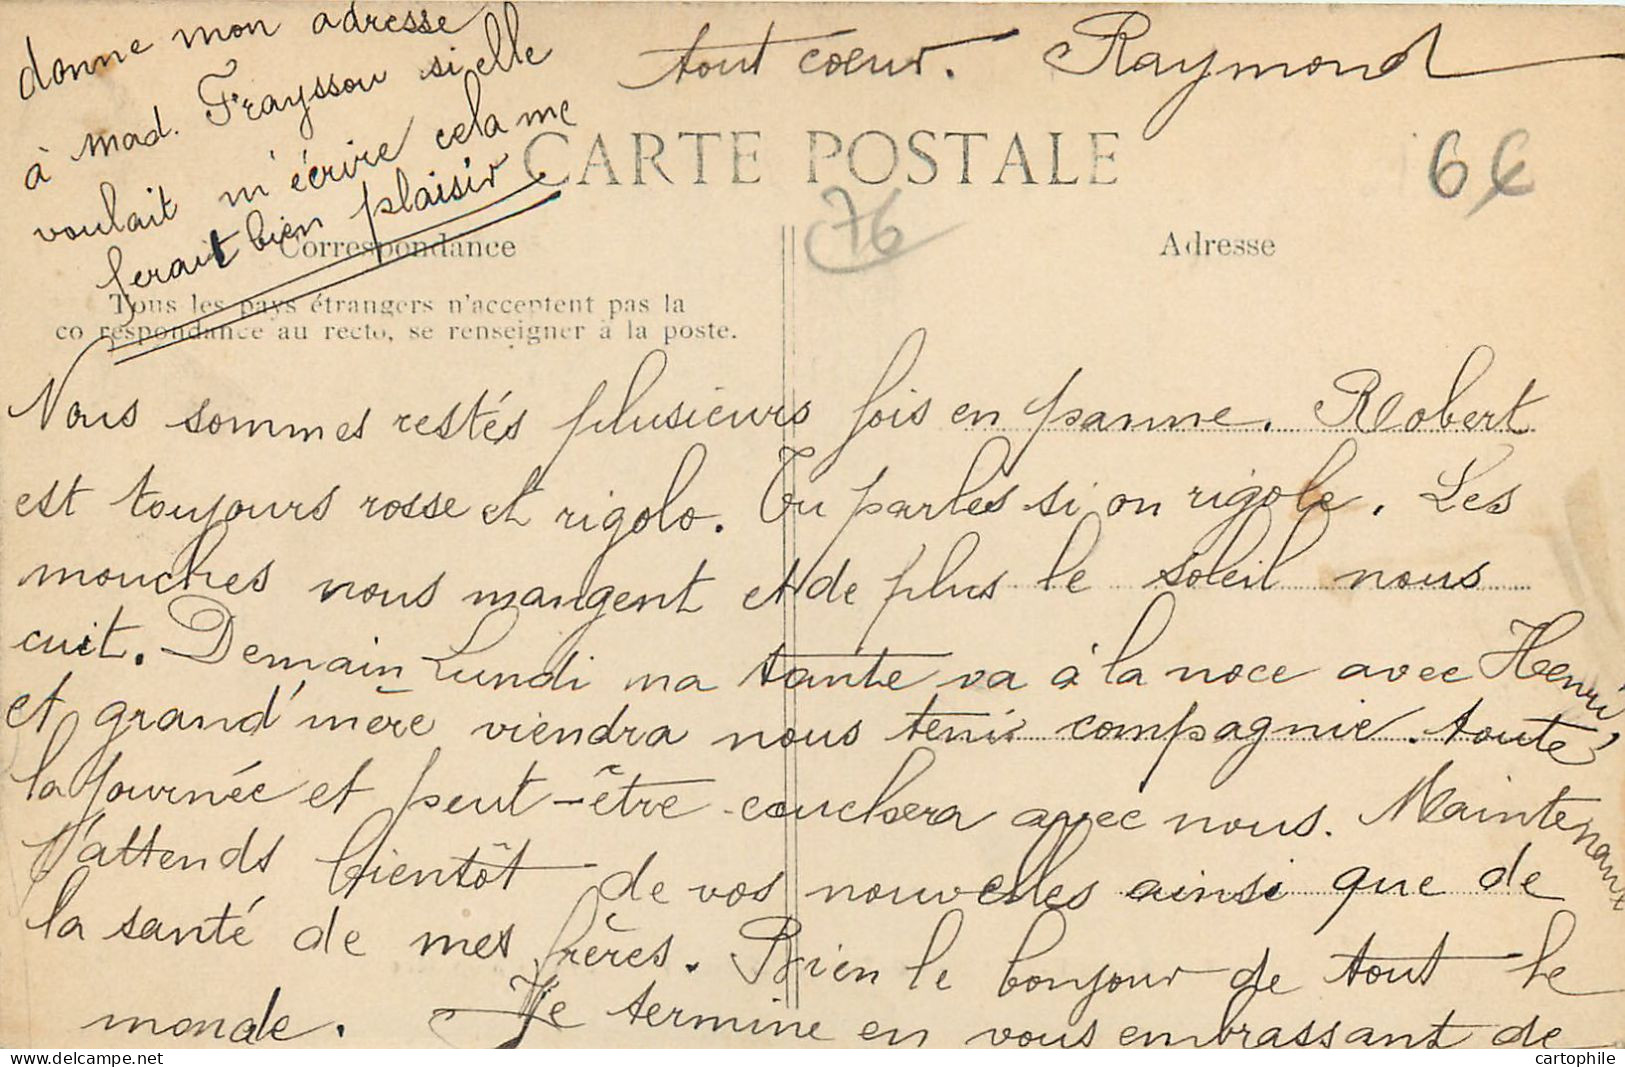 donne mon adresse
à mad. Frayssou si elle
voulait m'écrire cela me
ferait bien plaisir
tout cœur. Raymond
CARTE POSTALE
6€
76
Correspondance
Adresse
Tous les pays étrangers n'acceptent pas la
co respondance au recto, se renseigner à la poste.
Nous sommes restés plusieurs fois en panne. Robert
est toujours rosse et rigolo. Tu parles si on rigole. Les
mouches nous mangent et de plus le soleil nous
cuit. Demain Lundi ma tante va à la noce avec Henri
et grand'mère viendra nous tenir compagnie toute
la journée et peut-être couchera avec nous. Maintenant
j'attends bientôt de vos nouvelles ainsi que de
la santé de mes frères. Bien le bonjour de tout le
monde. Je termine en vous embrassant de
cartophile